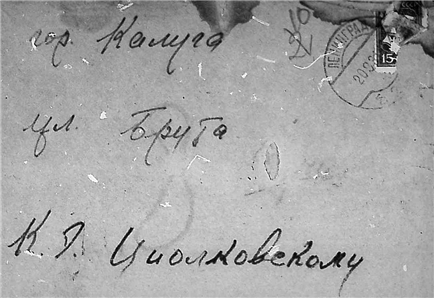 гор. Калуга
ул. Брута
К. Э. Циолковскому
ЛЕНИНГРАД
15